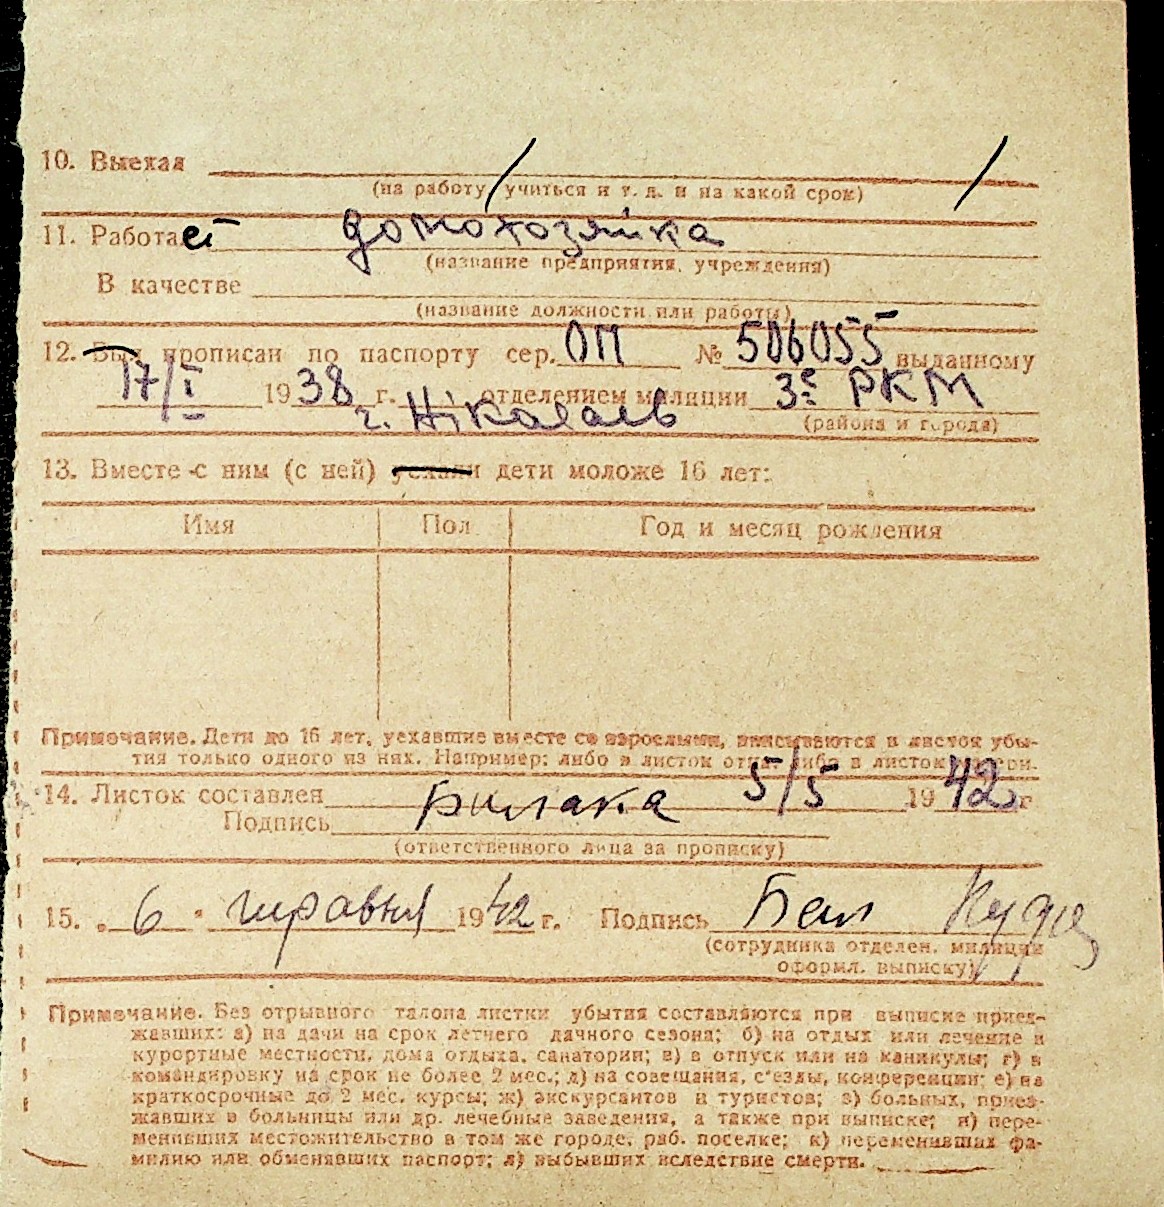 10. Выехал
(на работу, учиться и т. д. и на какой срок)
11. Работает домохозяйка
(название предприятия, учреждения)
В качестве
(название должности или работы)
12. Был прописан по паспорту сер. ОП № 506055 выданному
17/I 1938 г. отделением милиции 3е РКМ
г. Ніколаєв (района и города)
13. Вместе с ним (с ней) уехали дети моложе 16 лет:
Имя Пол Год и месяц рождения
Примечание. Дети до 16 лет, уехавшие вместе со взрослыми, вписываются в листок убы-
тия только одного из них. Например: либо в листок отца, либо в листок матери.
14. Листок составлен Билака 5/5 1942 г
Подпись
(ответственного лица за прописку)
15. „6" травня 1942 г. Подпись
(сотрудника отделен. милиции
оформл. выписку)
Примечание. Без отрывного талона листки убытия составляются при выписке приез-
жавших: а) на дачи на срок летнего дачного сезона; б) на отдых или лечение в
курортные местности, дома отдыха, санатории; в) в отпуск или на каникулы; г) в
командировку на срок не более 2 мес.; д) на совещания, с'езды, конференции; е) на
краткосрочные до 2 мес. курсы; ж) экскурсантов и туристов; з) больных, приез-
жавших в больницы или др. лечебные заведения, а также при выписке; и) пере-
менивших местожительство в том же городе, раб. поселке; к) переменивших фа-
милию или обменявших паспорт; л) выбывших вследствие смерти.